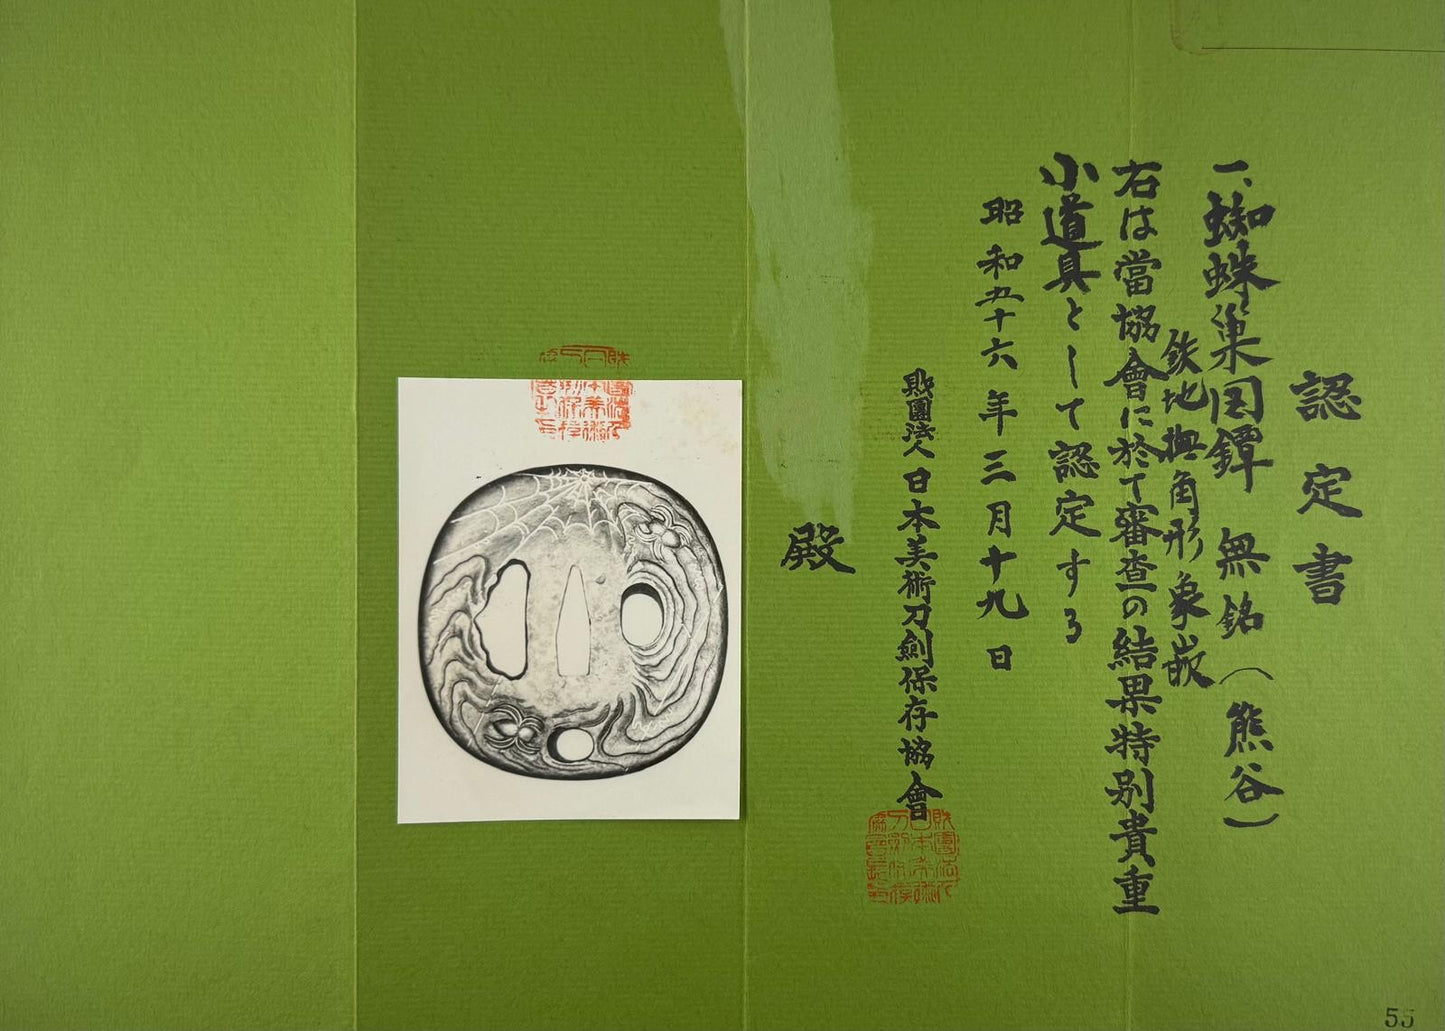 認定書
一、蜘蛛巣図鐔 無銘（熊谷）
鉄地撫角形象嵌
右は當協會に於て審査の結果特別貴重
小道具として認定する
昭和五十六年三月十九日
財團法人日本美術刀劍保存協會
殿
55